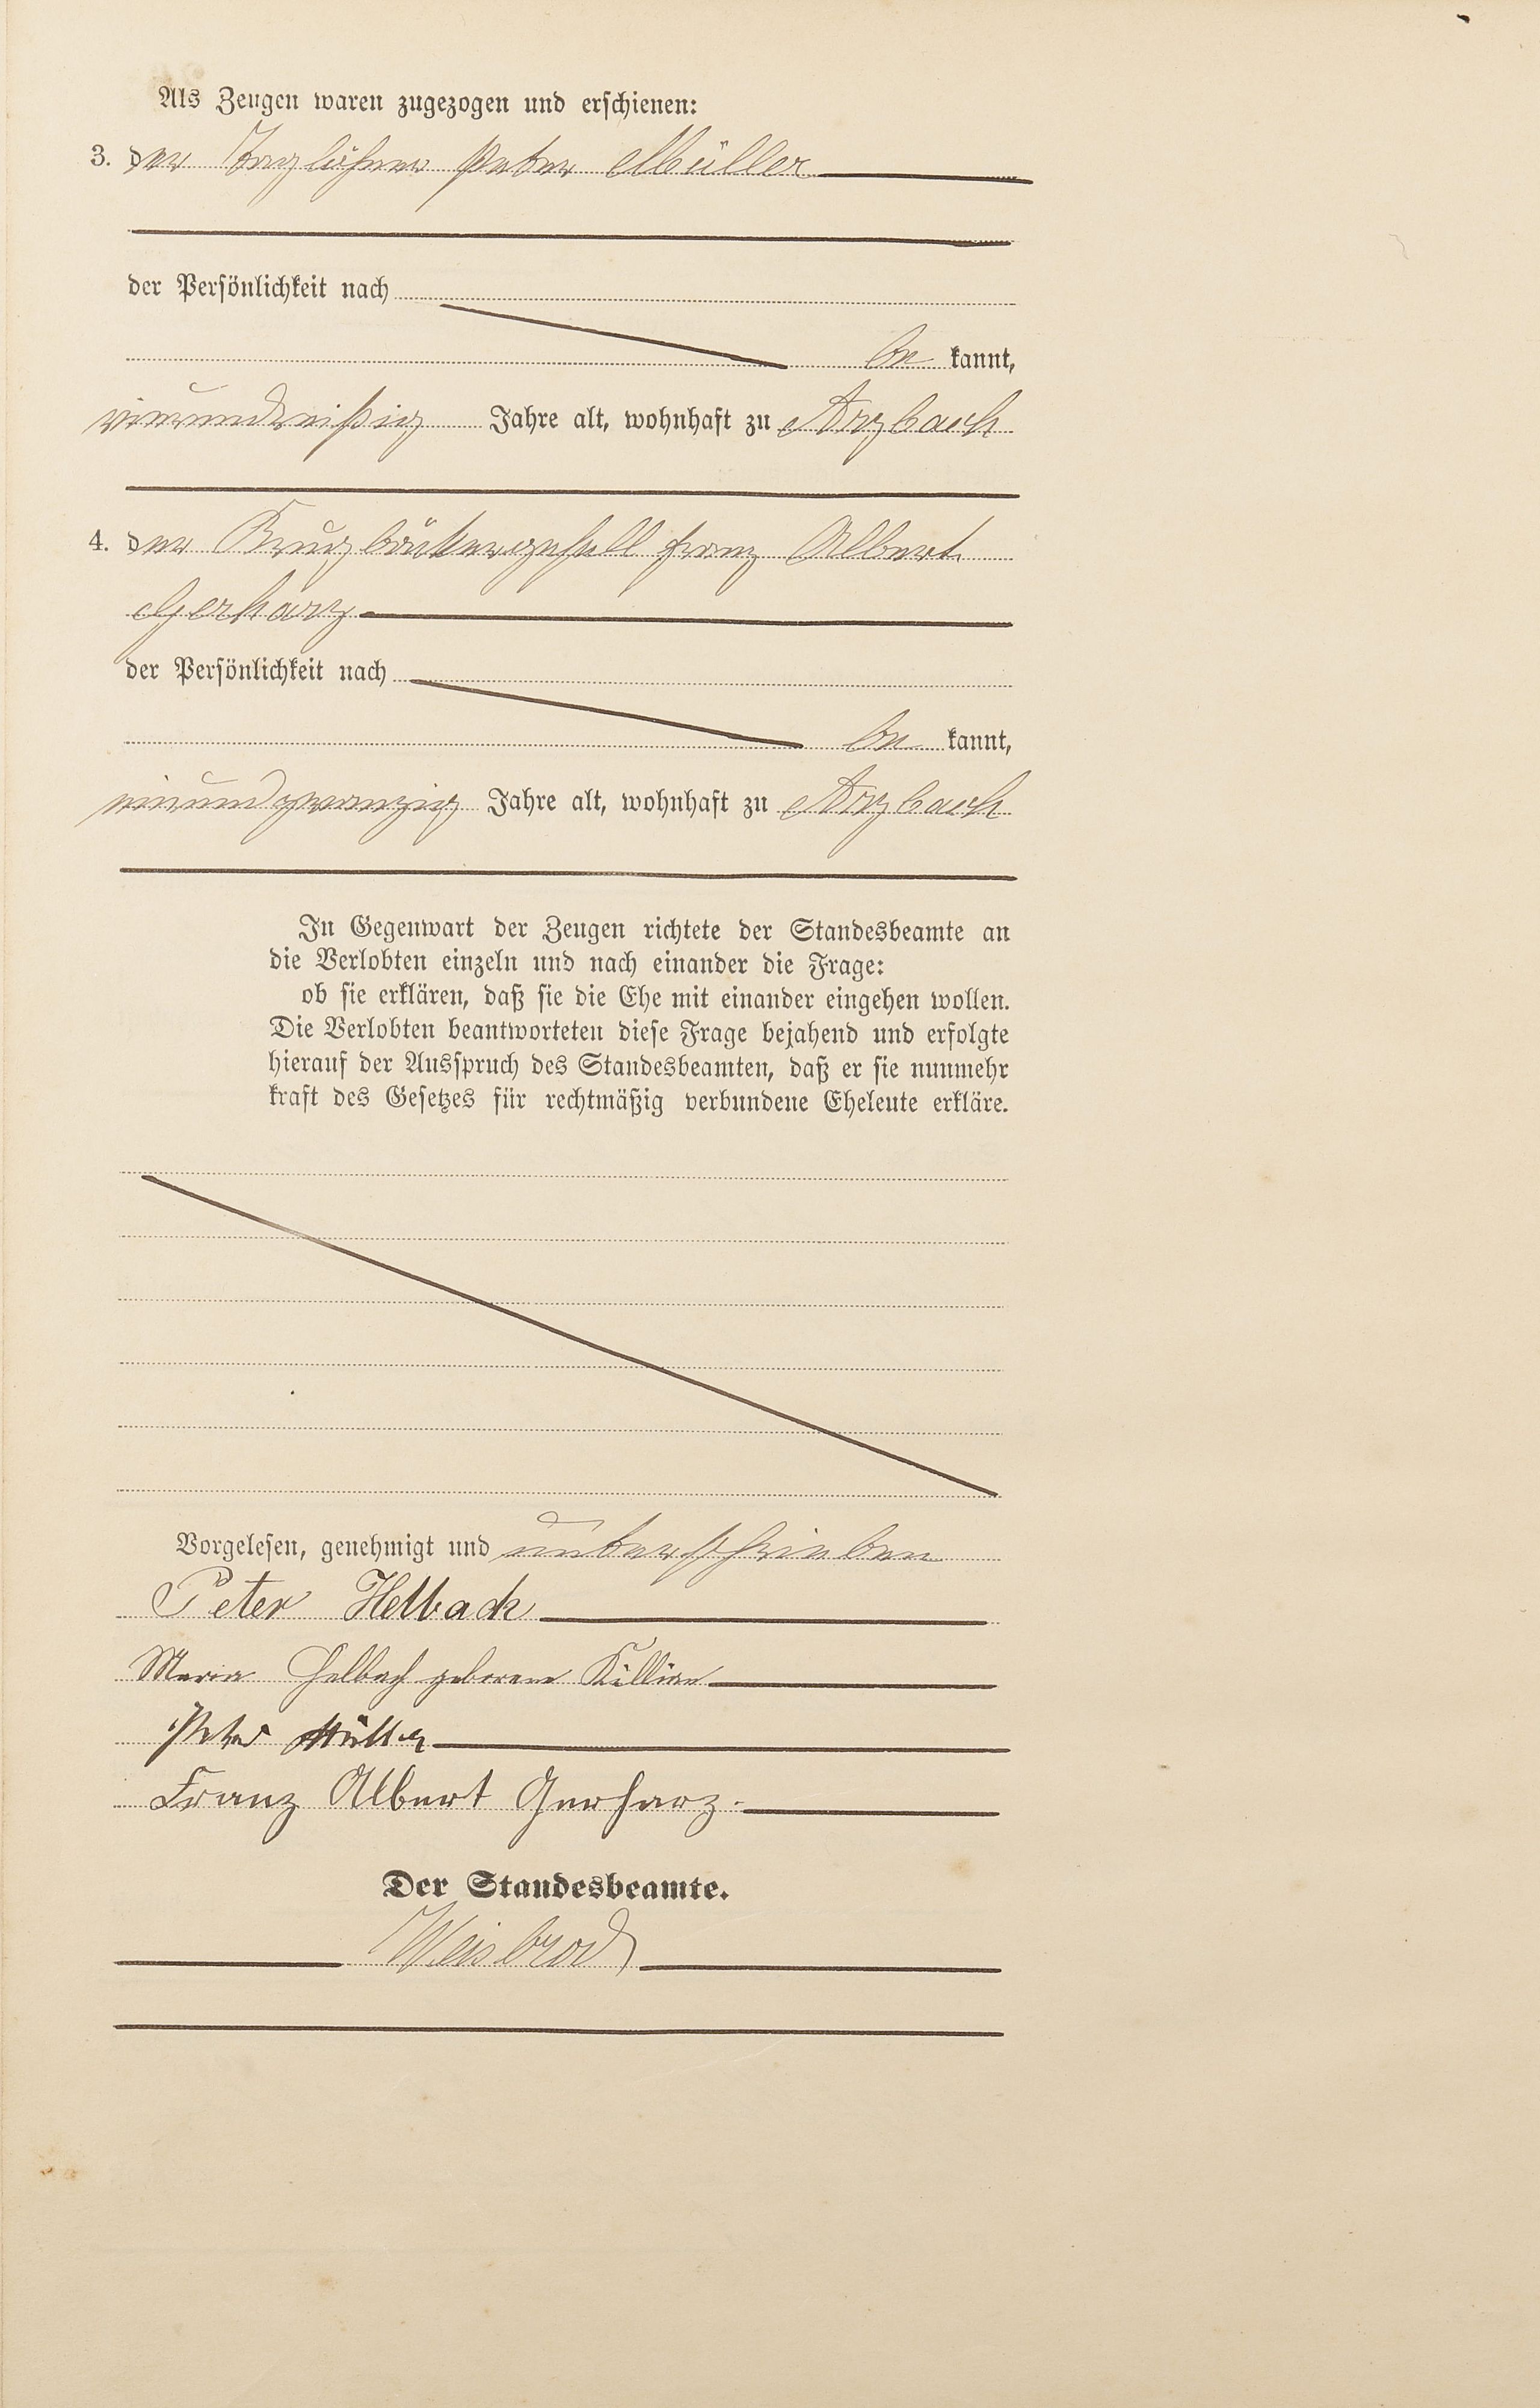 Als Zeugen waren zugezogen und erschienen:
3. der Taglöhner Peter Müller
der Persönlichkeit nach
be kannt,
vierunddreißig Jahre alt, wohnhaft zu Arzbach
4. der Krugbäckergesell Franz Albert
Gerharz
der Persönlichkeit nach
be kannt,
einundzwanzig Jahre alt, wohnhaft zu Arzbach
In Gegenwart der Zeugen richtete der Standesbeamte an
die Verlobten einzeln und nach einander die Frage:
ob sie erklären, daß sie die Ehe mit einander eingehen wollen.
Die Verlobten beantworteten diese Frage bejahend und erfolgte
hierauf der Ausspruch des Standesbeamten, daß er sie nunmehr
kraft des Gesetzes für rechtmäßig verbundene Eheleute erkläre.
Vorgelesen, genehmigt und unterschrieben
Peter Helbach
Maria Helbach geborene Killian
Peter Müller
Franz Albert Gerharz.
Der Standesbeamte.
Weisbrod